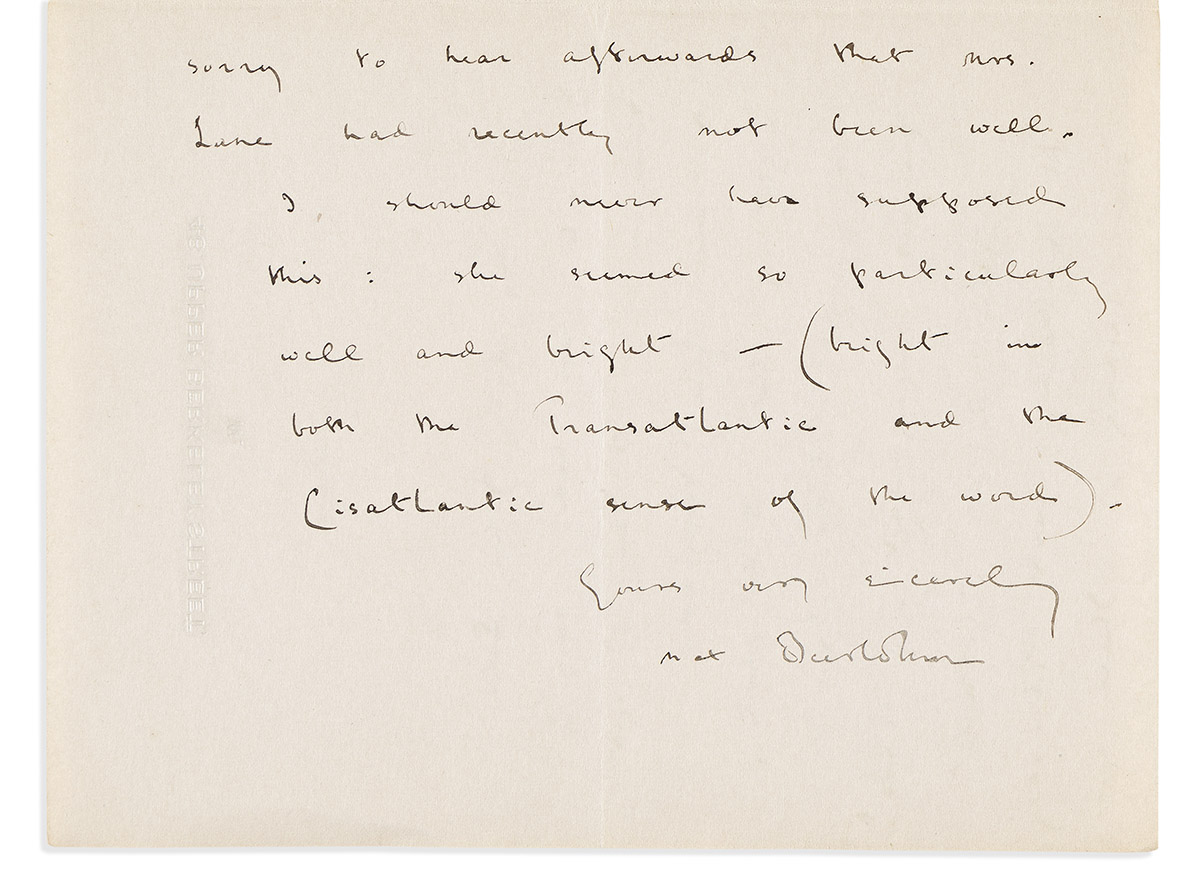 sorry to hear afterwards that Mrs.
Lane had recently not been well.
I should never have supposed
this : she seemed so particularly
well and bright — (bright in
both the Transatlantic and the
Cisatlantic sense of the word).
Yours very sincerely
Max Beerbohm
48 UPPER BERKELEY STREET